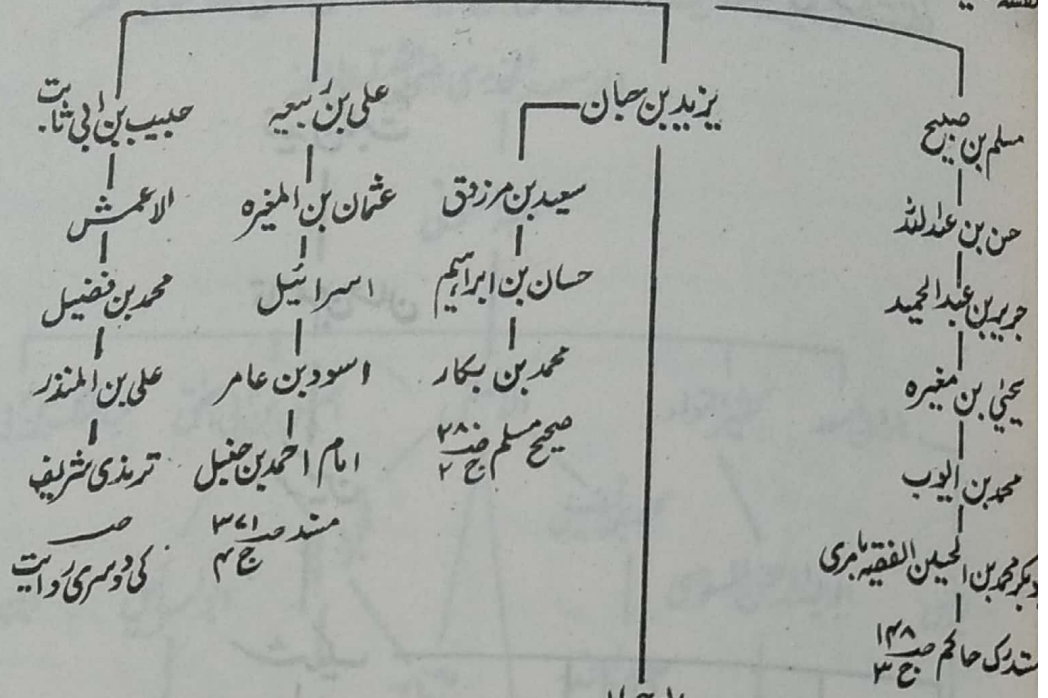 مسلم بن صبیح
حسن بن عبداللہ
جریر بن عبدالحمید
یحییٰ بن مغیرہ
محمد بن ایوب
محمد بن الحسین الفقیہ بامری
مستدرک حاکم صـ ۱۴۸
ج ۳
یزید بن حبان
سعید بن مرزوق
حسان بن ابراہیم
محمد بن بکار
صحیح مسلم صـ ۲۸۰
ج ۲
علی بن ربیعہ
عثمان بن المغیرہ
اسرائیل
اسود بن عامر
امام احمد بن حنبل
مسند صـ ۳۷۱
ج ۴
حبیب بن ابی ثابت
الاعمش
محمد بن فضیل
علی بن المنذر
ترمذی شریف
صـ
کی دوسری روایت